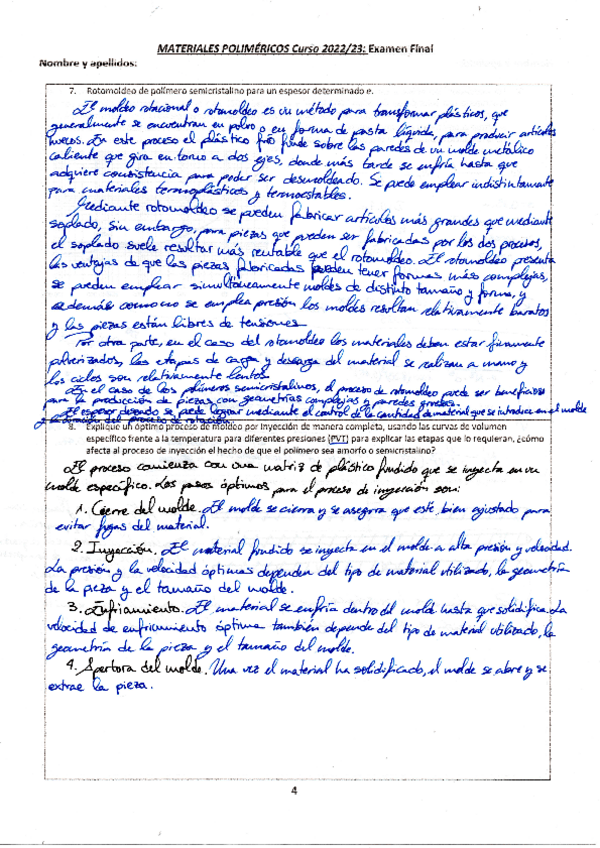 MATERIALES POLIMÉRICOS Curso 2022/23: Examen Final
Nombre y apellidos:
7. Rotomoldeo de polímero semicristalino para un espesor determinado e.
El moldeo rotacional o rotomoldeo es un método para transformar plásticos, que
generalmente se encuentran en polvo o en forma de pasta líquida, para producir artículos
huecos. En este proceso el plástico frío funde sobre las paredes de un molde metálico
caliente que gira en torno a dos ejes, donde más tarde se enfría hasta que
adquiere consistencia para poder ser desmoldeado. Se puede emplear indistintamente
para materiales termoplásticos y termoestables.
Mediante rotomoldeo se pueden fabricar artículos más grandes que mediante
soplado, sin embargo, para piezas que pueden ser fabricadas por los dos procesos,
el soplado suele resultar más rentable que el rotomoldeo. El rotomoldeo presenta
las ventajas de que las piezas fabricadas pueden tener formas más complejas,
se pueden emplear simultáneamente moldes de distinto tamaño y forma, y
además como no se emplea presión los moldes resultan relativamente baratos
y las piezas están libres de tensiones.
Por otra parte, en el caso del rotomoldeo los materiales deben estar finamente
pulverizados, las etapas de carga y descarga del material se realizan a mano y
los ciclos son relativamente lentos.
En el caso de los polímeros semicristalinos, el proceso de rotomoldeo puede ser beneficioso
para la producción de piezas con geometrías complejas y paredes gruesas.
El espesor deseado se puede lograr mediante el control de la cantidad de material que se introduce en el molde
y la duración del proceso de rotación.
8. Explique un óptimo proceso de moldeo por inyección de manera completa, usando las curvas de volumen
específico frente a la temperatura para diferentes presiones (PVT) para explicar las etapas que lo requieran, ¿cómo
afecta al proceso de inyección el hecho de que el polímero sea amorfo o semicristalino?
El proceso comienza con una matriz de plástico fundido que se inyecta en un
molde específico. Los pasos óptimos para el proceso de inyección son:
1. Cierre del molde. El molde se cierra y se asegura que esté bien ajustado para
evitar fugas del material.
2. Inyección. El material fundido se inyecta en el molde a alta presión y velocidad.
La presión y la velocidad óptimas dependen del tipo de material utilizado, la geometría
de la pieza y el tamaño del molde.
3. Enfriamiento. El material se enfría dentro del molde hasta que solidifica. La
velocidad de enfriamiento óptima también depende del tipo de material utilizado, la
geometría de la pieza y el tamaño del molde.
4. Apertura del molde. Una vez el material ha solidificado, el molde se abre y se
extrae la pieza.
4